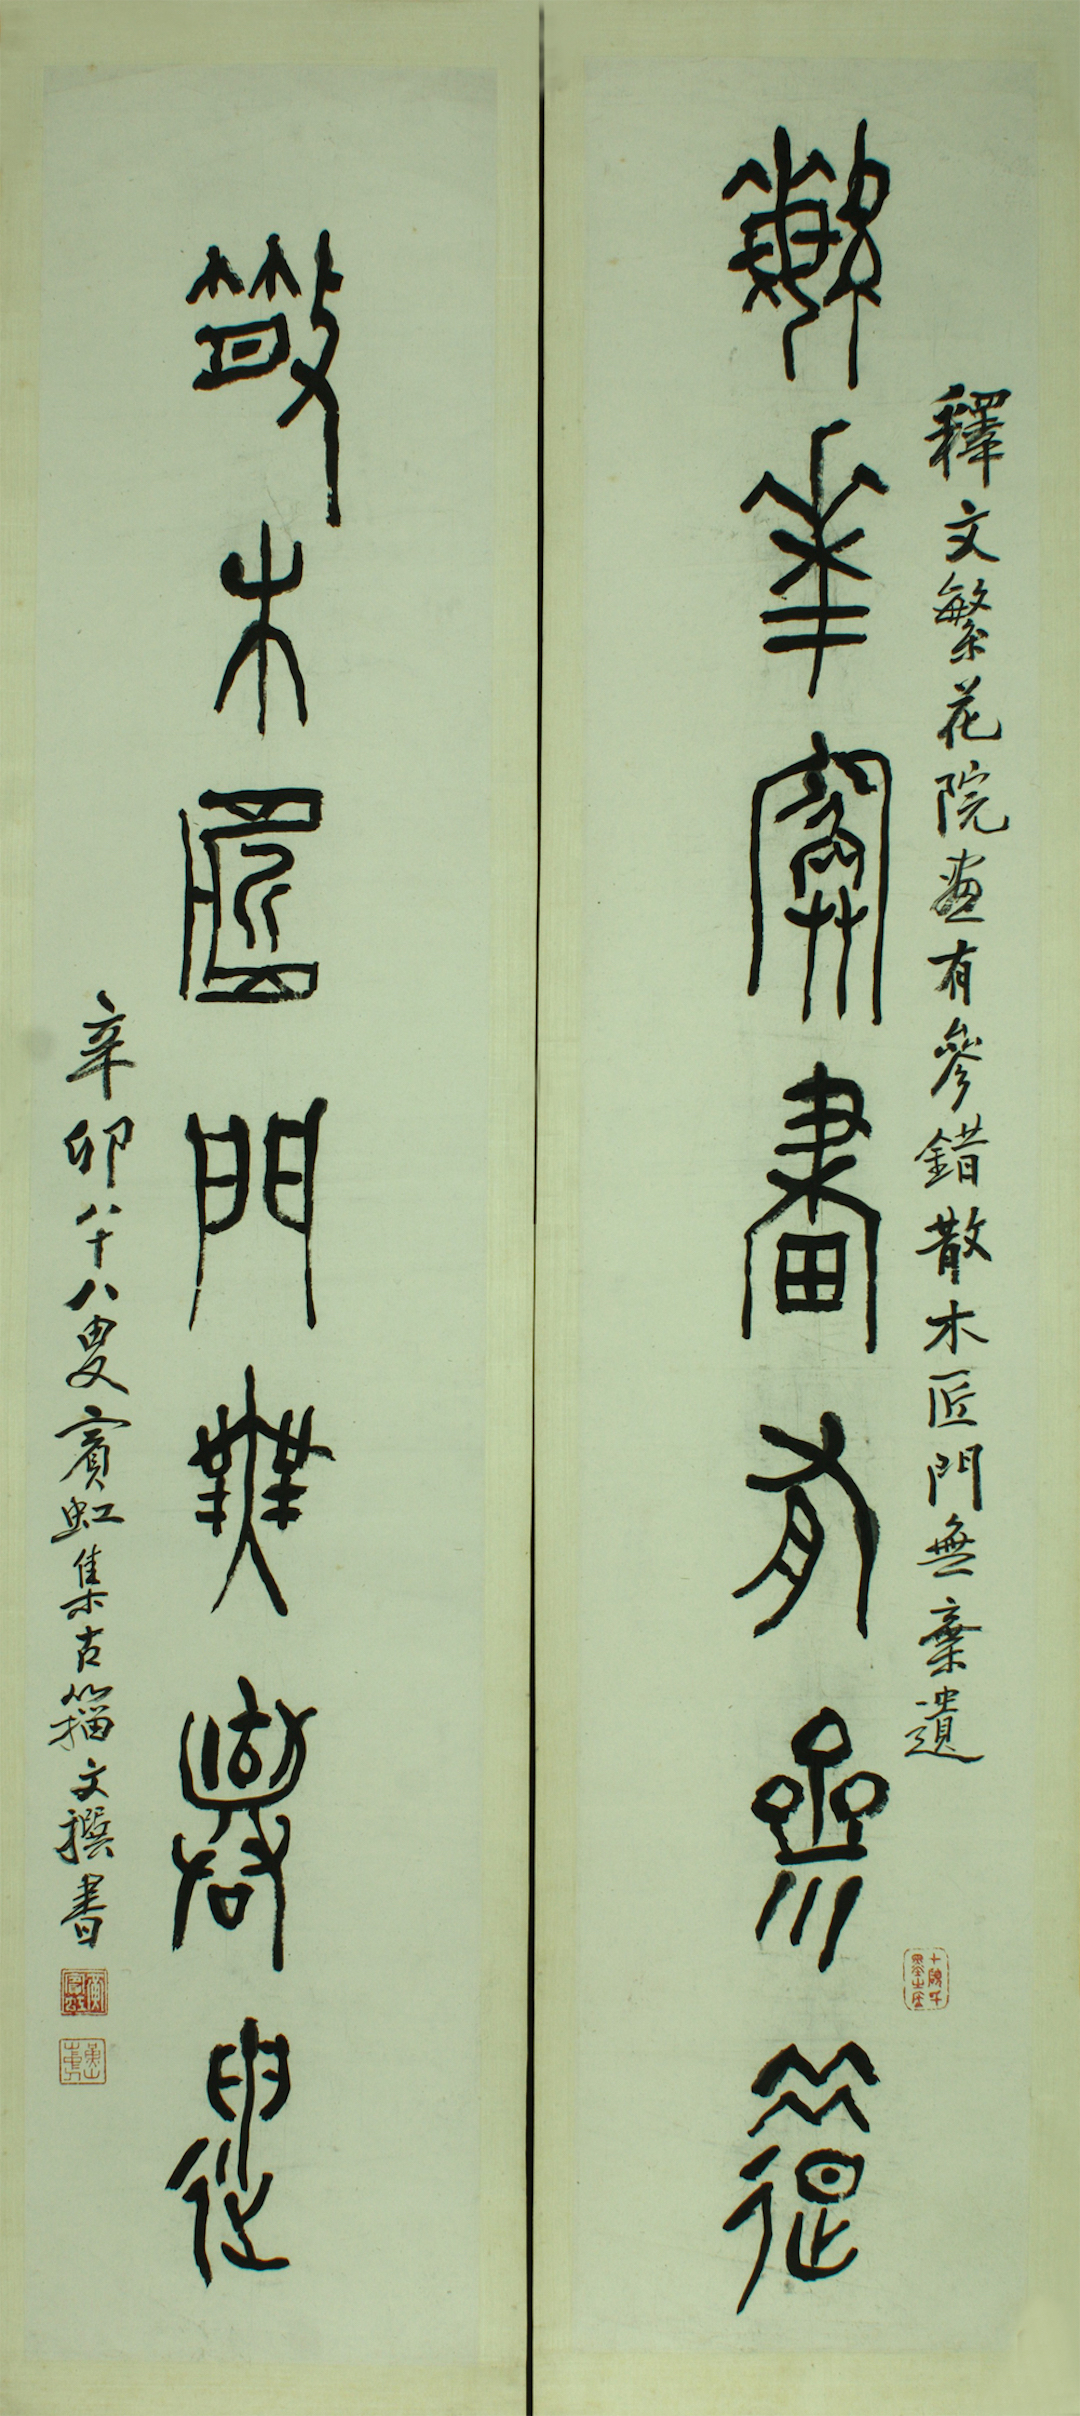 釋文繁花院畫有參錯散木匠門無棄遺
繁華院畫有參錯
散木匠門無棄遺
辛卯八十八叟賓虹集古籀文撰書
黃賓虹